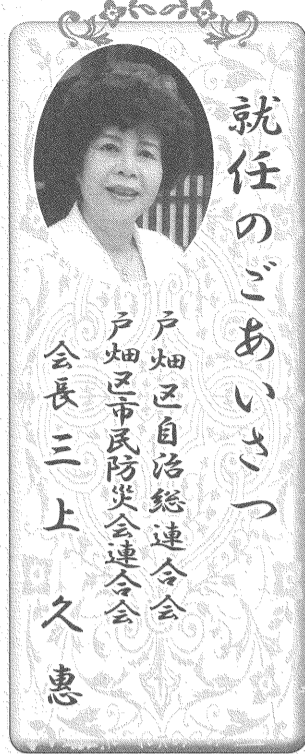 就任のごあいさつ
戸畑区自治総連合会
戸畑区市民防災会連合会
会長 三上 久惠